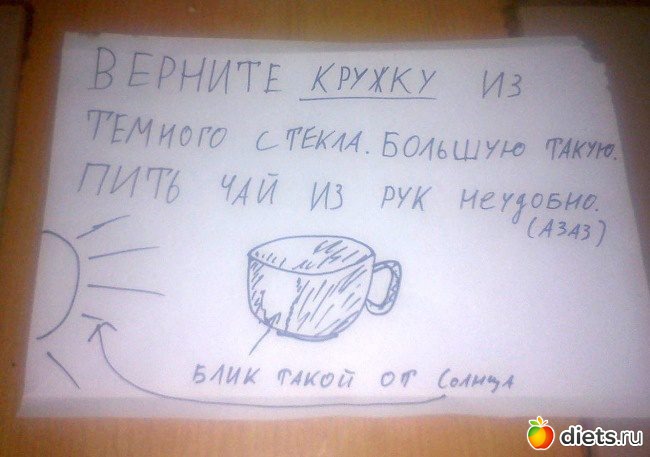 ВЕРНИТЕ КРУЖКУ ИЗ
ТЕМНОГО СТЕКЛА. БОЛЬШУЮ ТАКУЮ.
ПИТЬ ЧАЙ ИЗ РУК НЕУДОБНО.
(АЗАЗ)
БЛИК ТАКОЙ ОТ Солнца
diets.ru